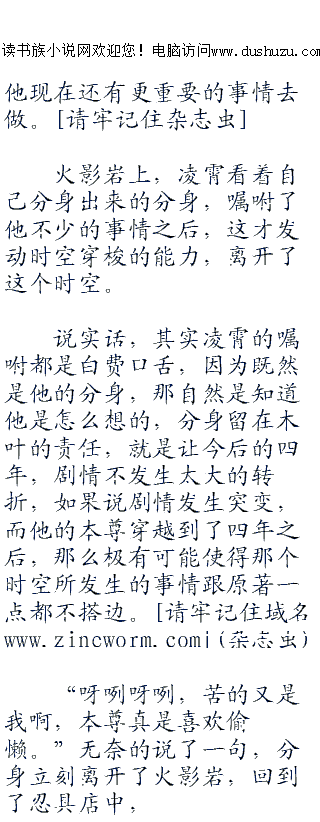 读书族小说网欢迎您！电脑访问www.dushuzu.com
他现在还有更重要的事情去
做。[请牢记住杂志虫]
火影岩上，凌霄看着自
己分身出来的分身，嘱咐了
他不少的事情之后，这才发
动时空穿梭的能力，离开了
这个时空。
说实话，其实凌霄的嘱
咐都是白费口舌，因为既然
是他的分身，那自然是知道
他是怎么想的，分身留在木
叶的责任，就是让今后的四
年，剧情不发生太大的转
折，如果说剧情发生突变，
而他的本尊穿越到了四年之
后，那么极有可能使得那个
时空所发生的事情跟原著一
点都不搭边。[请牢记住域名
www.zincworm.com|(杂志虫)
“呀咧呀咧，苦的又是
我啊，本尊真是喜欢偷
懒。”无奈的说了一句，分
身立刻离开了火影岩，回到
了忍具店中，